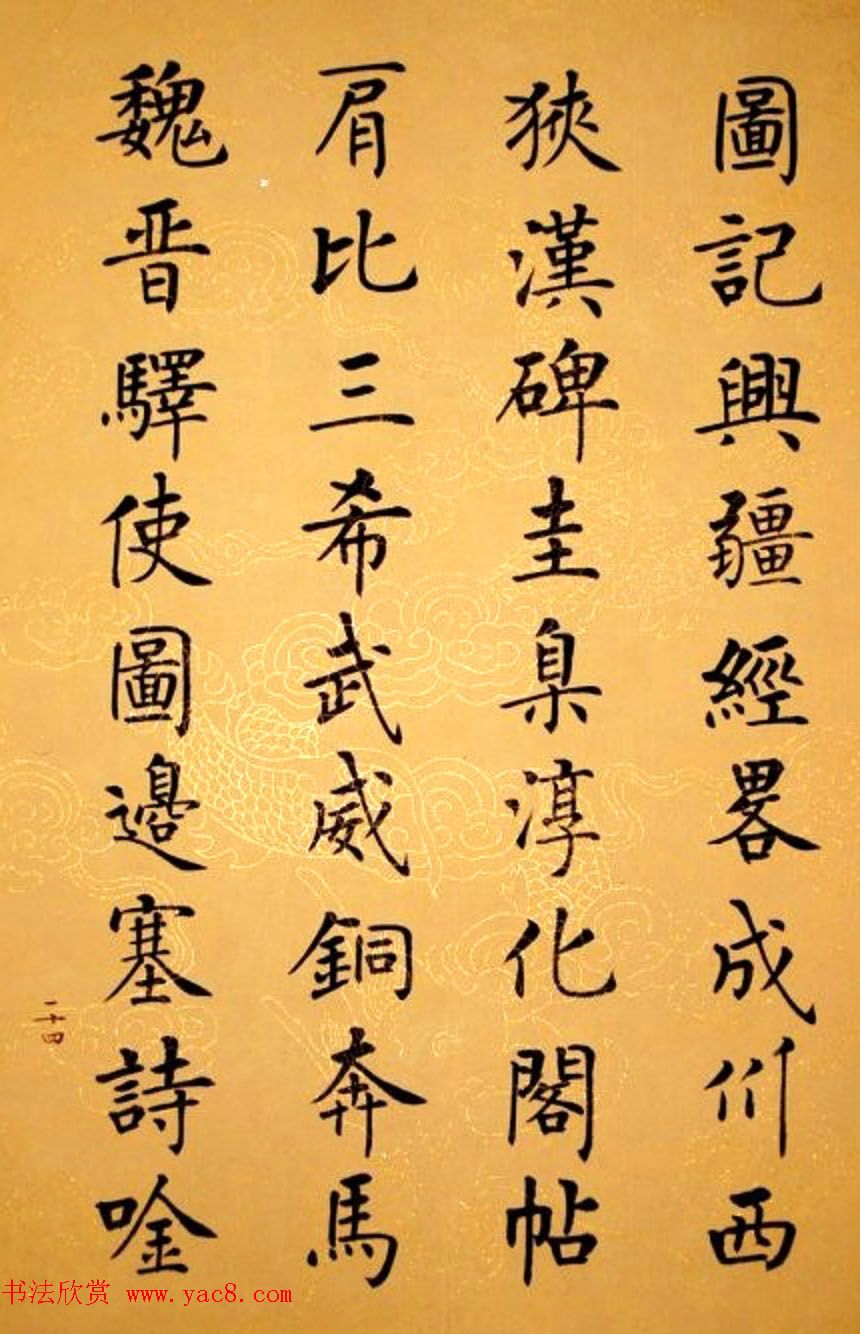 圖記興疆經畧成州西
狹漢碑圭臬淳化閣帖
肩比三希武威銅奔馬
魏晋驛使圖邊塞詩唫
二十四
书法欣赏 www.yac8.com